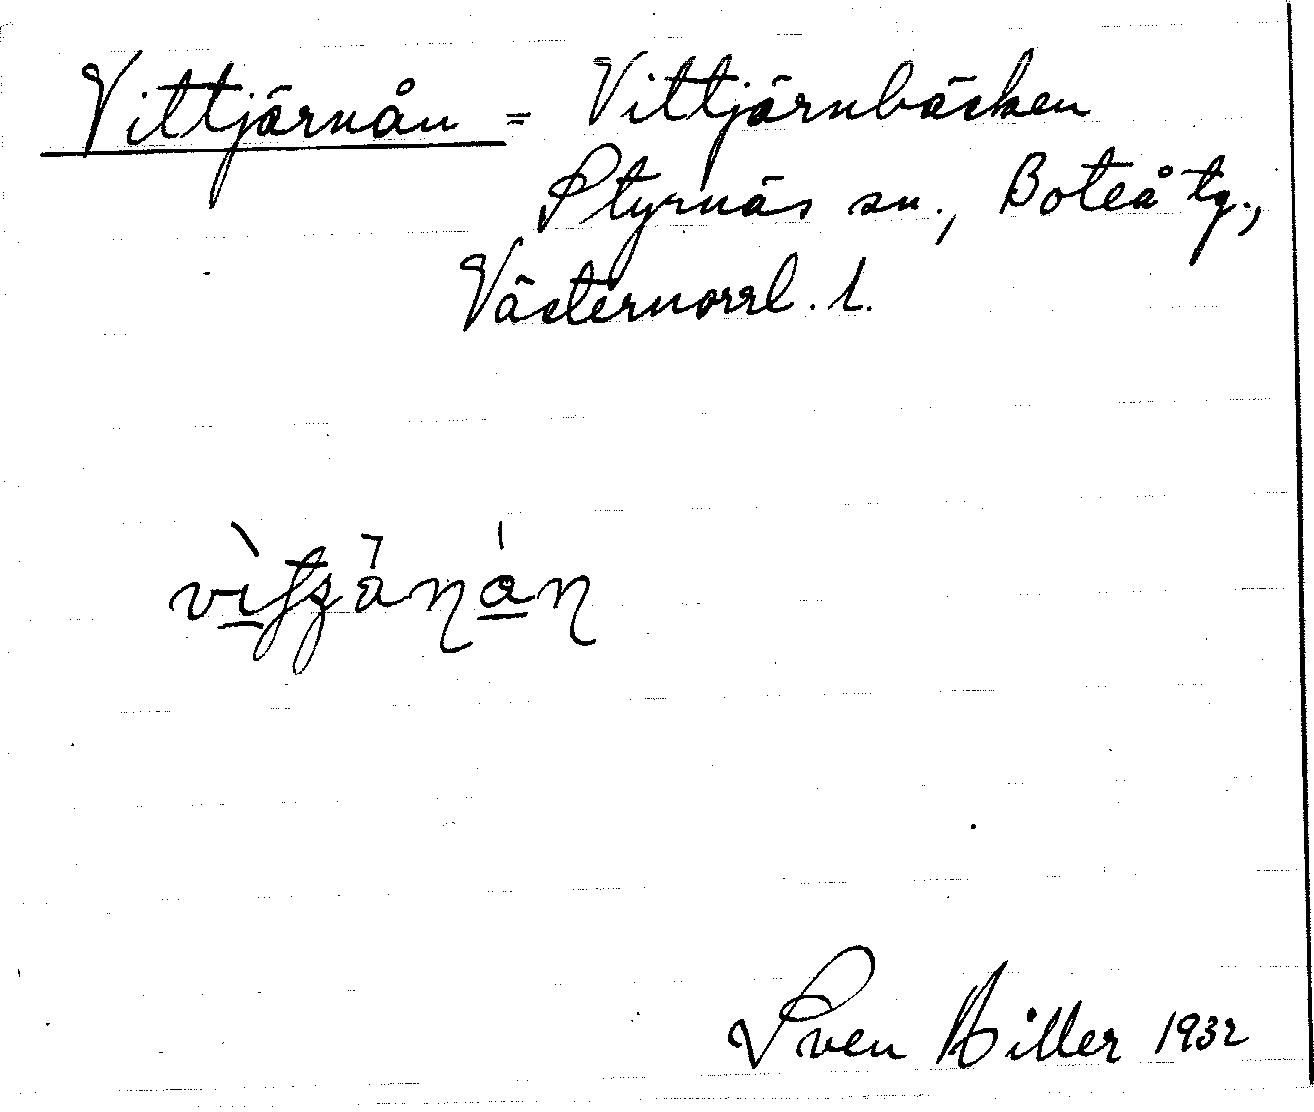 Vittjärnån = Vittjärnbäcken
Styrnäs sn., Boteå tg.,
Västernorrl. l.
Sven Hiller 1932